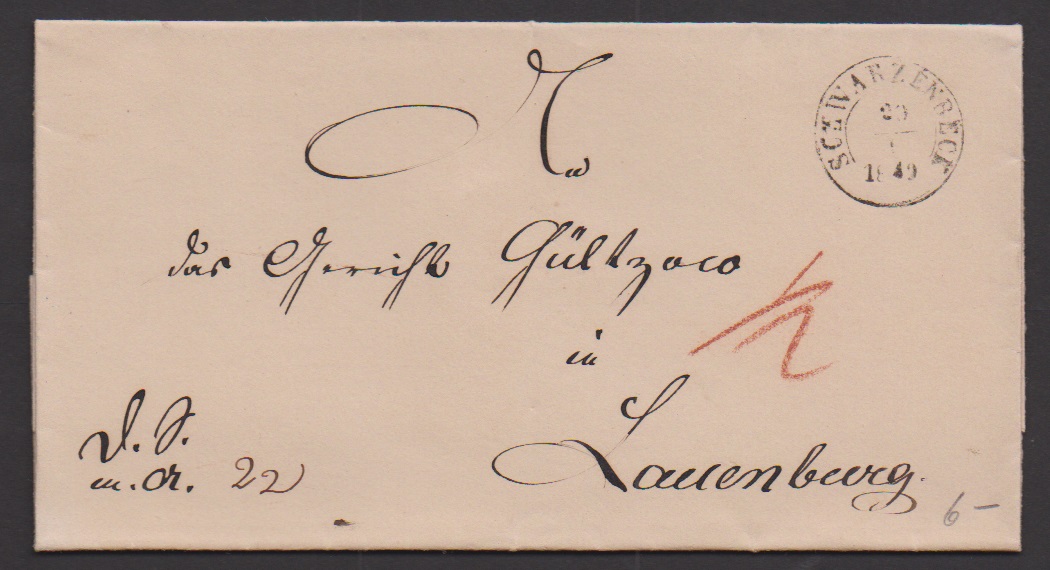 SCHWARZENBECK
20
1
1849
An
das Gericht Gültzow
in
Lauenburg.
D. S.
m. A. 22
6 -